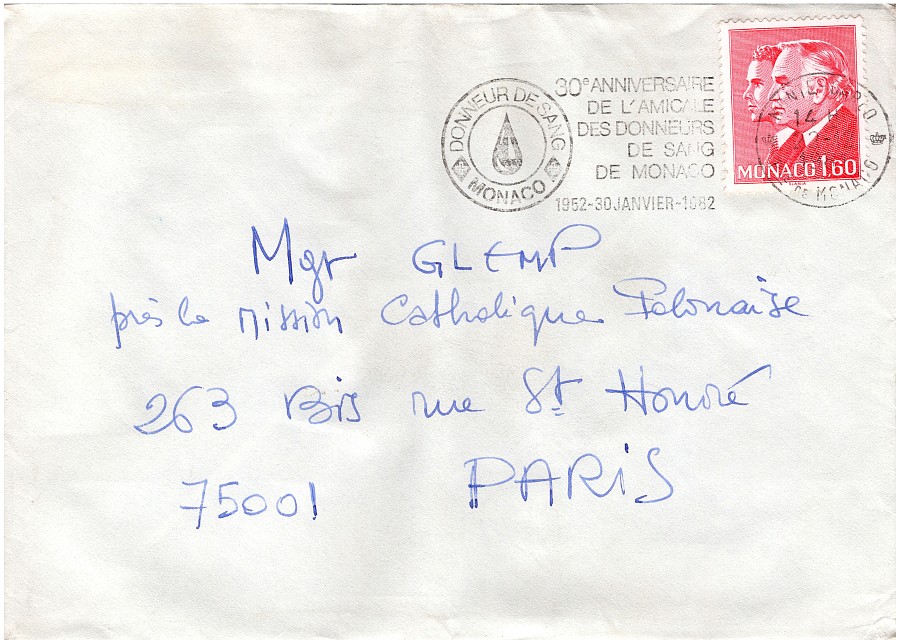 DONNEUR DE SANG
MONACO
30e ANNIVERSAIRE
DE L'AMICALE
DES DONNEURS
DE SANG
DE MONACO
1952-30 JANVIER-1982
MONACO 1,60
DE MONACO
Mgr GLEMP
près la Mission Catholique Polonaise
263 Bis rue St Honoré
75001 PARIS